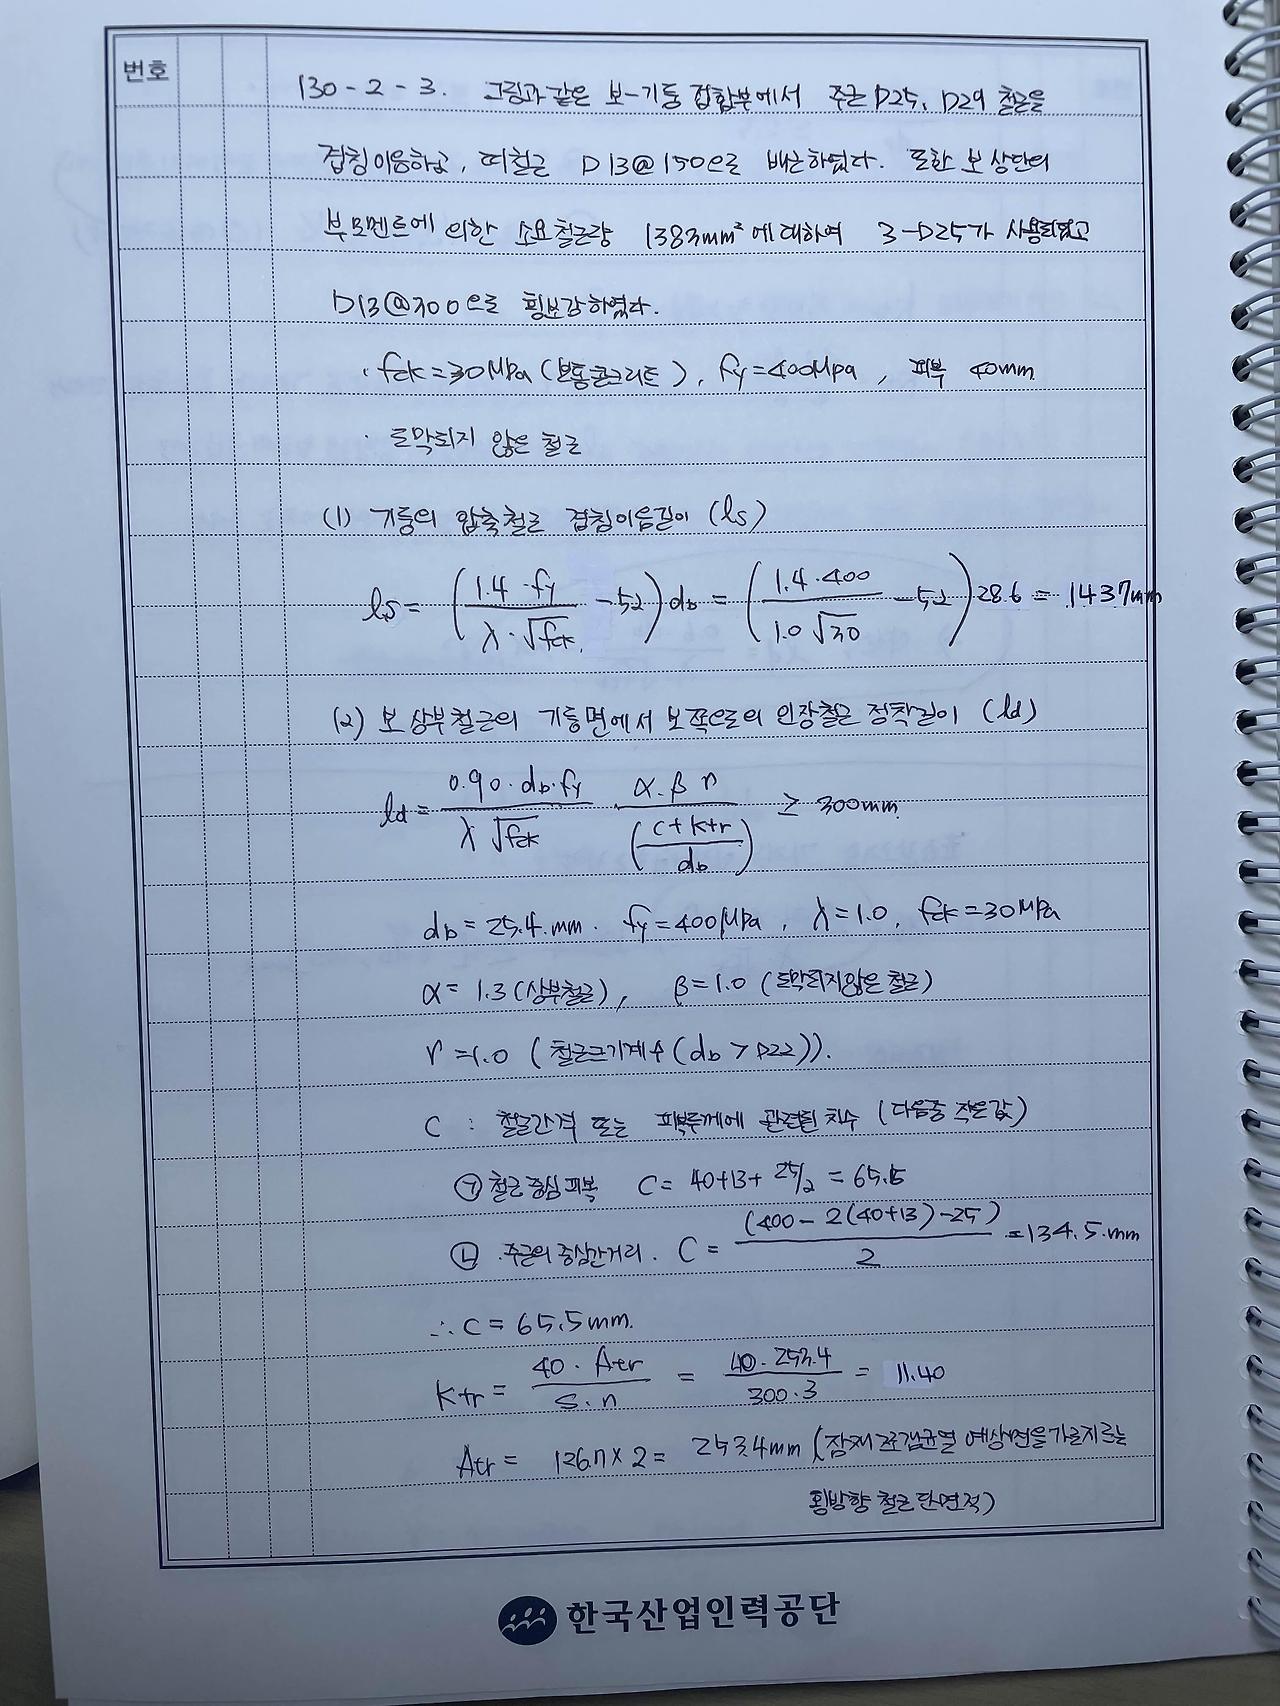 번호
130-2-3. 그림과 같은 보-기둥 접합부에서 주근 D25, D29 철근을
겹침이음하고, 띠철근 D13@150으로 배근하였다. 또한 보 상단의
부모멘트에 의한 소요철근량 1383mm²에 대하여 3-D25가 사용되었고
D13@300으로 횡보강하였다.
· fck=30MPa(보통콘크리트), fy=400MPa, 피복 40mm.
· 도막되지 않은 철근
(1) 기둥의 압축철근 겹침이음길이 (ls)
ls = (1.4·fy / λ·√fck - 52) db = (1.4·400 / 1.0√30 - 52) 28.6 = 1437mm
(2) 보 상부철근의 기둥면에서 보쪽으로의 인장철근 정착길이 (ld)
ld = 0.90·db·fy / λ√fck · α·β·r / ((c+ktr) / db) ≥ 300mm.
db = 25.4.mm. fy=400MPa, λ=1.0, fck=30MPa
α= 1.3(상부철근), β=1.0 (도막되지않은 철근)
r=1.0 (철근크기계수(db > D22)).
C : 철근간격 또는 피복두께에 관련된 치수 (다음중 작은값)
㉠ 철근중심피복 C= 40+13+ 25/2 = 65.5
㉡ 주근의 중심간거리. C = (400-2(40+13)-25) / 2 = 134.5.mm
∴ C = 65.5mm.
Ktr = 40·Atr / s.n = 40·253.4 / 300·3 = 11.40
Atr = 126.7×2= 253.4mm (잠재 쪼갬균열 예상면을 가로지르는
횡방향 철근 단면적)
한국산업인력공단